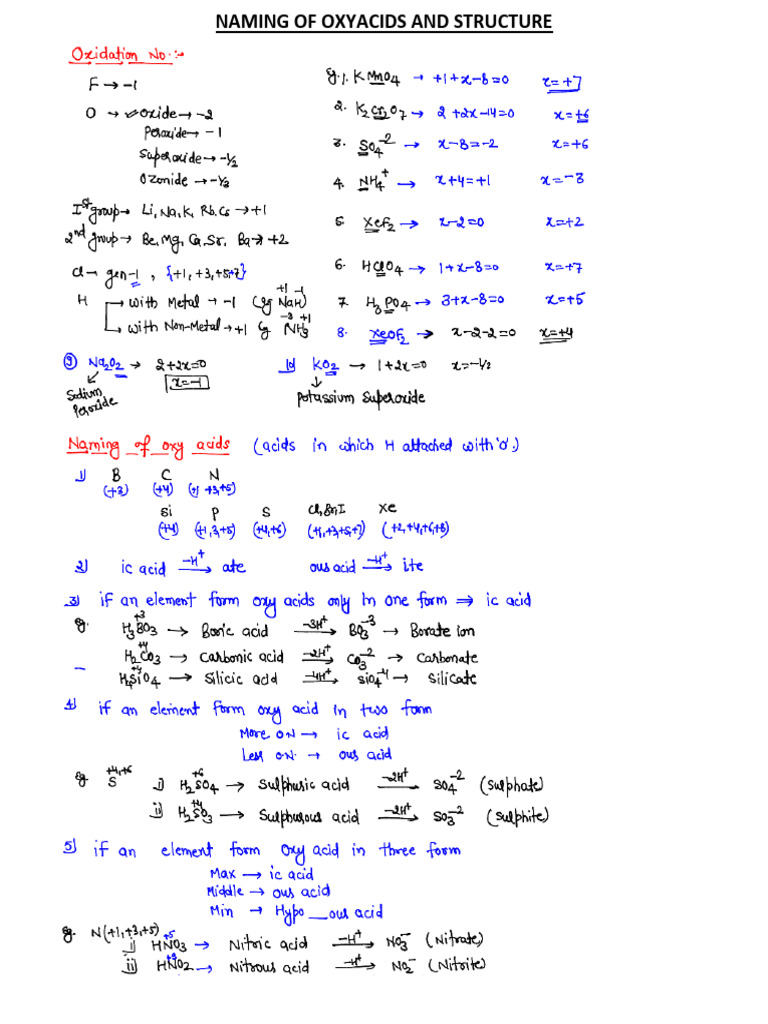 NAMING OF OXYACIDS AND STRUCTURE
Oxidation No:-
F → -1
O → Oxide → -2
Peroxide → -1
Superoxide → -1/2
Ozonide → -1/3
Ist group → Li, Na, K, Rb, Cs → +1
2nd group → Be, Mg, Ca, Sr, Ba → +2
Cl → gen -1, {+1, +3, +5+7}
H → with Metal → -1 (eg NaH) +1 -1
→ with Non-Metal → +1 eg NH3 -3 +1
Eg. 1. KMnO4 → +1+x-8=0 x=+7
2. K2Cr2O7 → 2+2x-14=0 x=+6
3. SO4-2 → x-8=-2 x=+6
4. NH4+ → x+4=+1 x=-3
5. XeF2 → x-2=0 x=+2
6. HClO4 → 1+x-8=0 x=+7
7. H3PO4 → 3+x-8=0 x=+5
8. XeOF2 → x-2-2=0 x=+4
9 Na2O2 → 2+2x=0 x=-1
Sodium Peroxide
10 KO2 → 1+2x=0 x=-1/2
Potassium Superoxide
Naming of oxy acids (acids in which H attached with 'o'.)
1) B C N
(+3) (+4) (+1 +3,+5)
Si P S Cl, Br, I Xe
(+4) (+1,3,+5) (+4,+6) (+1,+3,+5,+7) (+2,+4,+6,+8)
2) ic acid -H+→ ate ous acid -H+→ ite
3) if an element form oxy acids only in one form ⇒ ic acid
eg. H3BO3 +3 → Boric acid -3H+→ BO3-3 → Borate ion
H2CO3 +4 → Carbonic acid -2H+→ CO3-2 → Carbonate
H4SiO4 +4 → Silicic acid -4H+→ SiO4-4 → Silicate
4) if an element form oxy acid in two form
More O.N → ic acid
Less O.N. → ous acid
eg S +4,+6 i) H2SO4 +6 → Sulphuric acid -2H+→ SO4-2 (Sulphate)
ii) H2SO3 +4 → Sulphurous acid -2H+→ SO3-2 (Sulphite)
5) if an element form oxy acid in three form
Max → ic acid
Middle → ous acid
Min → Hypo __ous acid
eg. N(+1,+3,+5) i) HNO3 +5 → Nitric acid -H+→ NO3- (Nitrate)
ii) HNO2 +3 → Nitrous acid -H+→ NO2- (Nitrite)